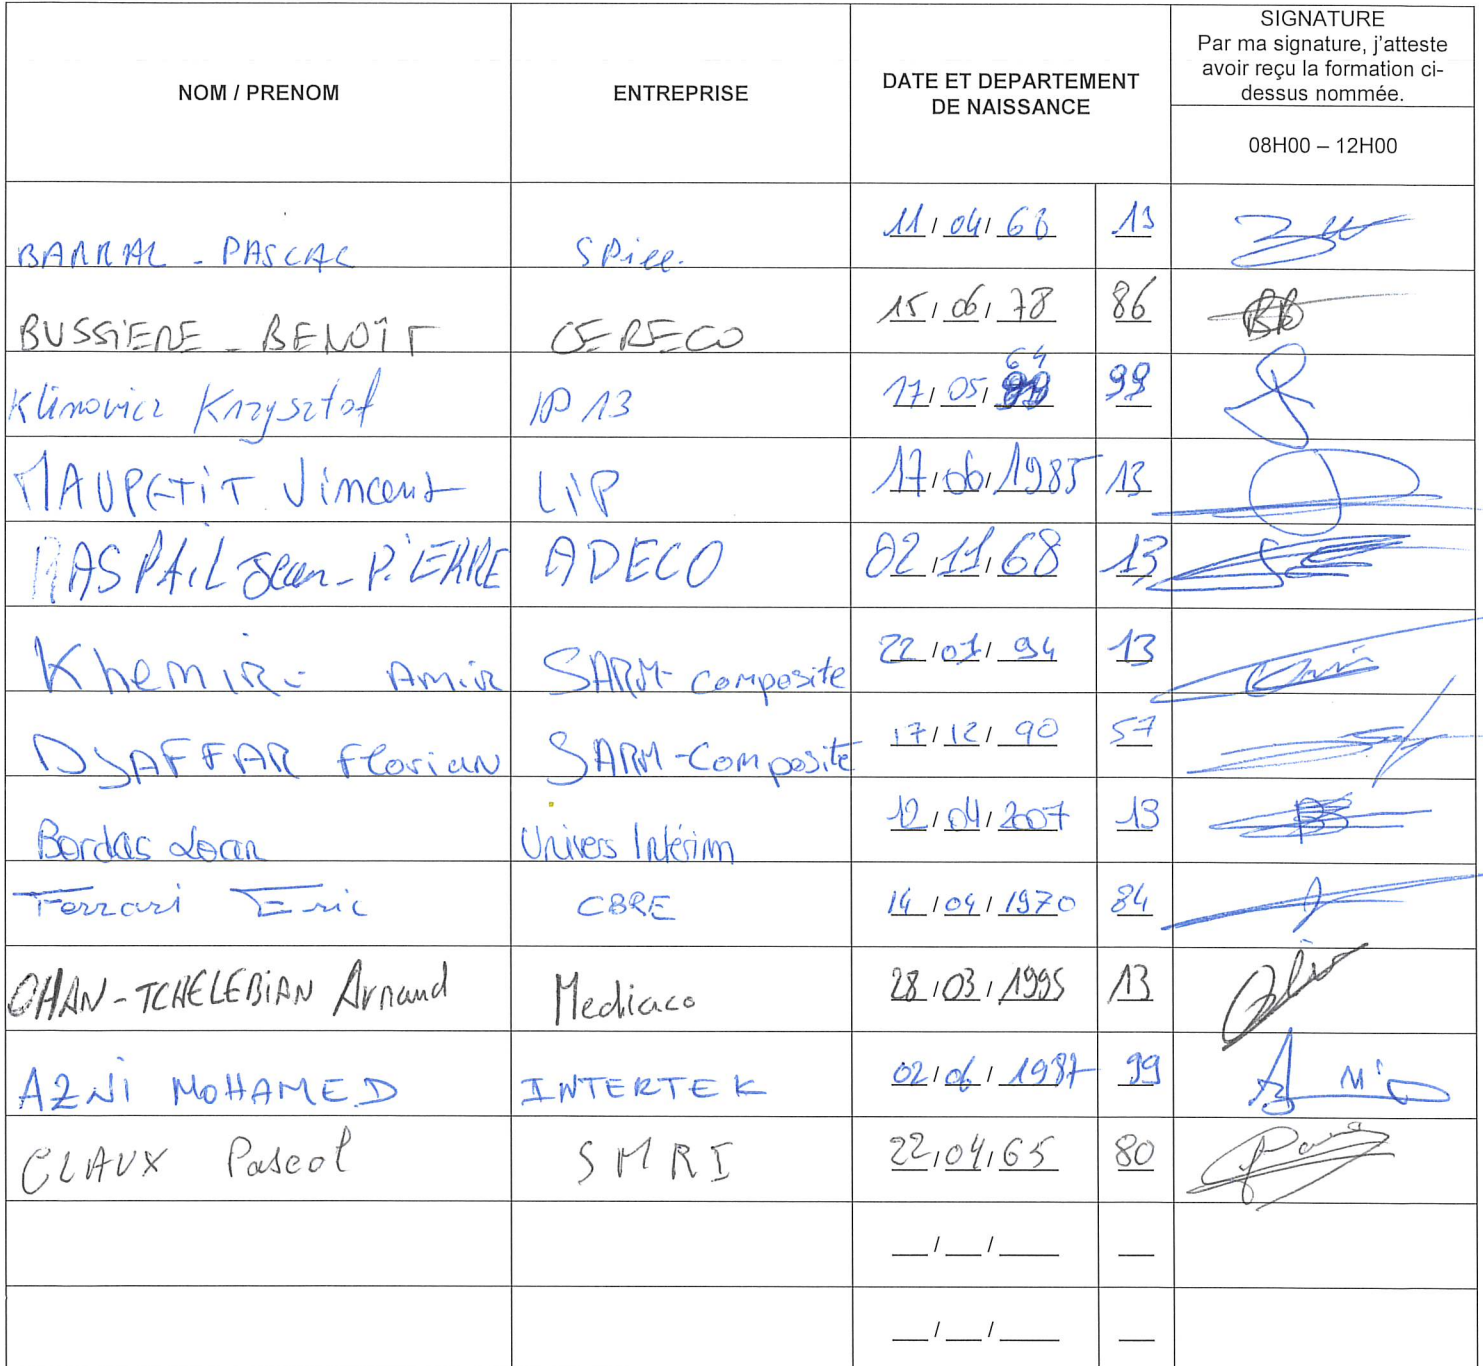 NOM / PRENOM ENTREPRISE DATE ET DEPARTEMENT
DE NAISSANCE SIGNATURE
Par ma signature, j'atteste
avoir reçu la formation ci-
dessus nommée.
08H00 – 12H00
BARRAL - PASCAL 11/04/68 13
BUSSIERE - BENOÎT CERECO 15/06/78 86
Klimovicz Krzysztof IP 13 17/05/64 99
MAUPETIT Vincent LIP 17/06/1985 13
RASPAIL Jean-PiERRE ADECO 02/11/68 13
Khemiri Amir SARM-Composite 22/07/94 13
DJAFFAR Florian SARM-Composite 17/12/90 57
Bordas Loan Univers Intérim 12/04/2007 13
Ferrari Eric CBRE 14/04/1970 84
OHAN-TCHELEBIAN Arnaud Mediaco 28/03/1995 13
AZNI MOHAMED INTERTEK 02/06/1987 99
CLAUX Pascal SMRI 22/04/65 80
__/__/____ __
__/__/____ __